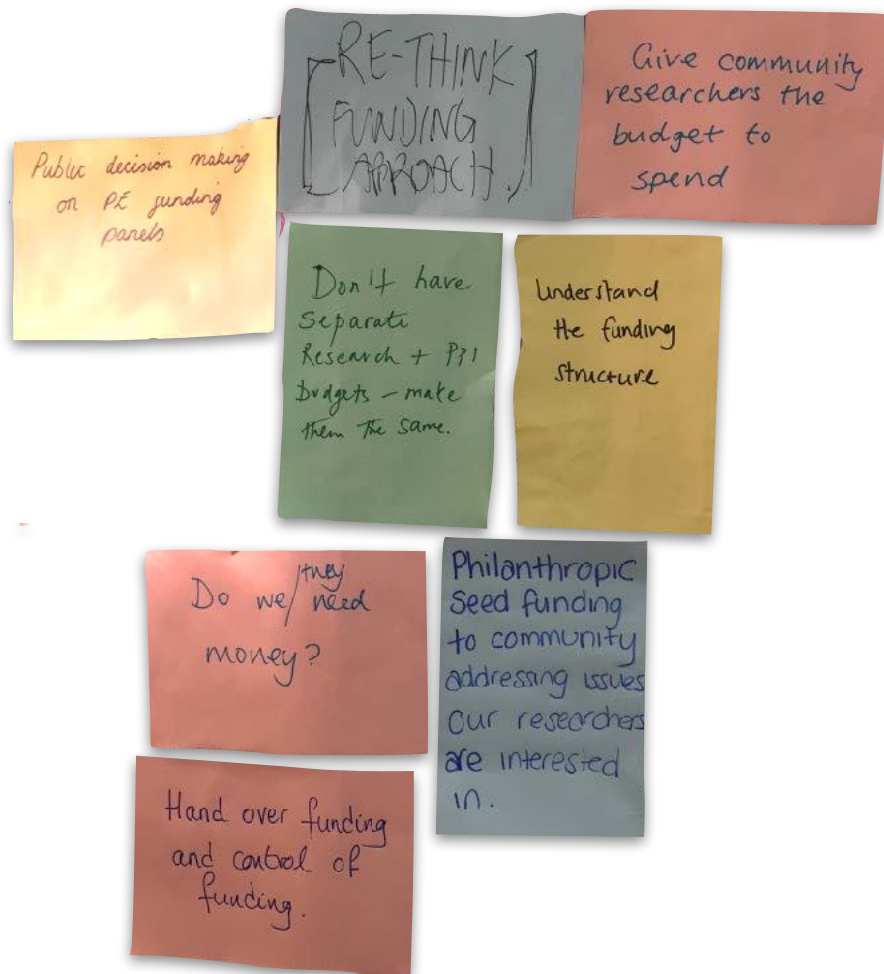 RE-THINK
FUNDING
APPROACH.
Give community
researchers the
budget to
spend
Public decision making
on PE funding
panels
Don't have
separate
Research + PPI
budgets – make
them the same.
Understand
the funding
structure
Do we/they need
money?
Philanthropic
seed funding
to community
addressing issues
our researchers
are interested
in.
Hand over funding
and control of
funding.